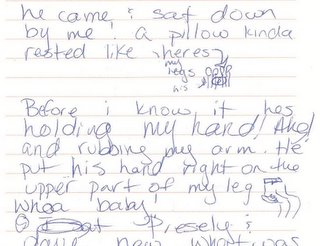 he came & sat down
by me! a pillow kinda
rested like heres
my
legs
his
Before i know it hes
holding my hand! Ahd
and rubbing my arm. He
put his hand right on the
upper part of my leg
whoa baby!
Presely &
now what was